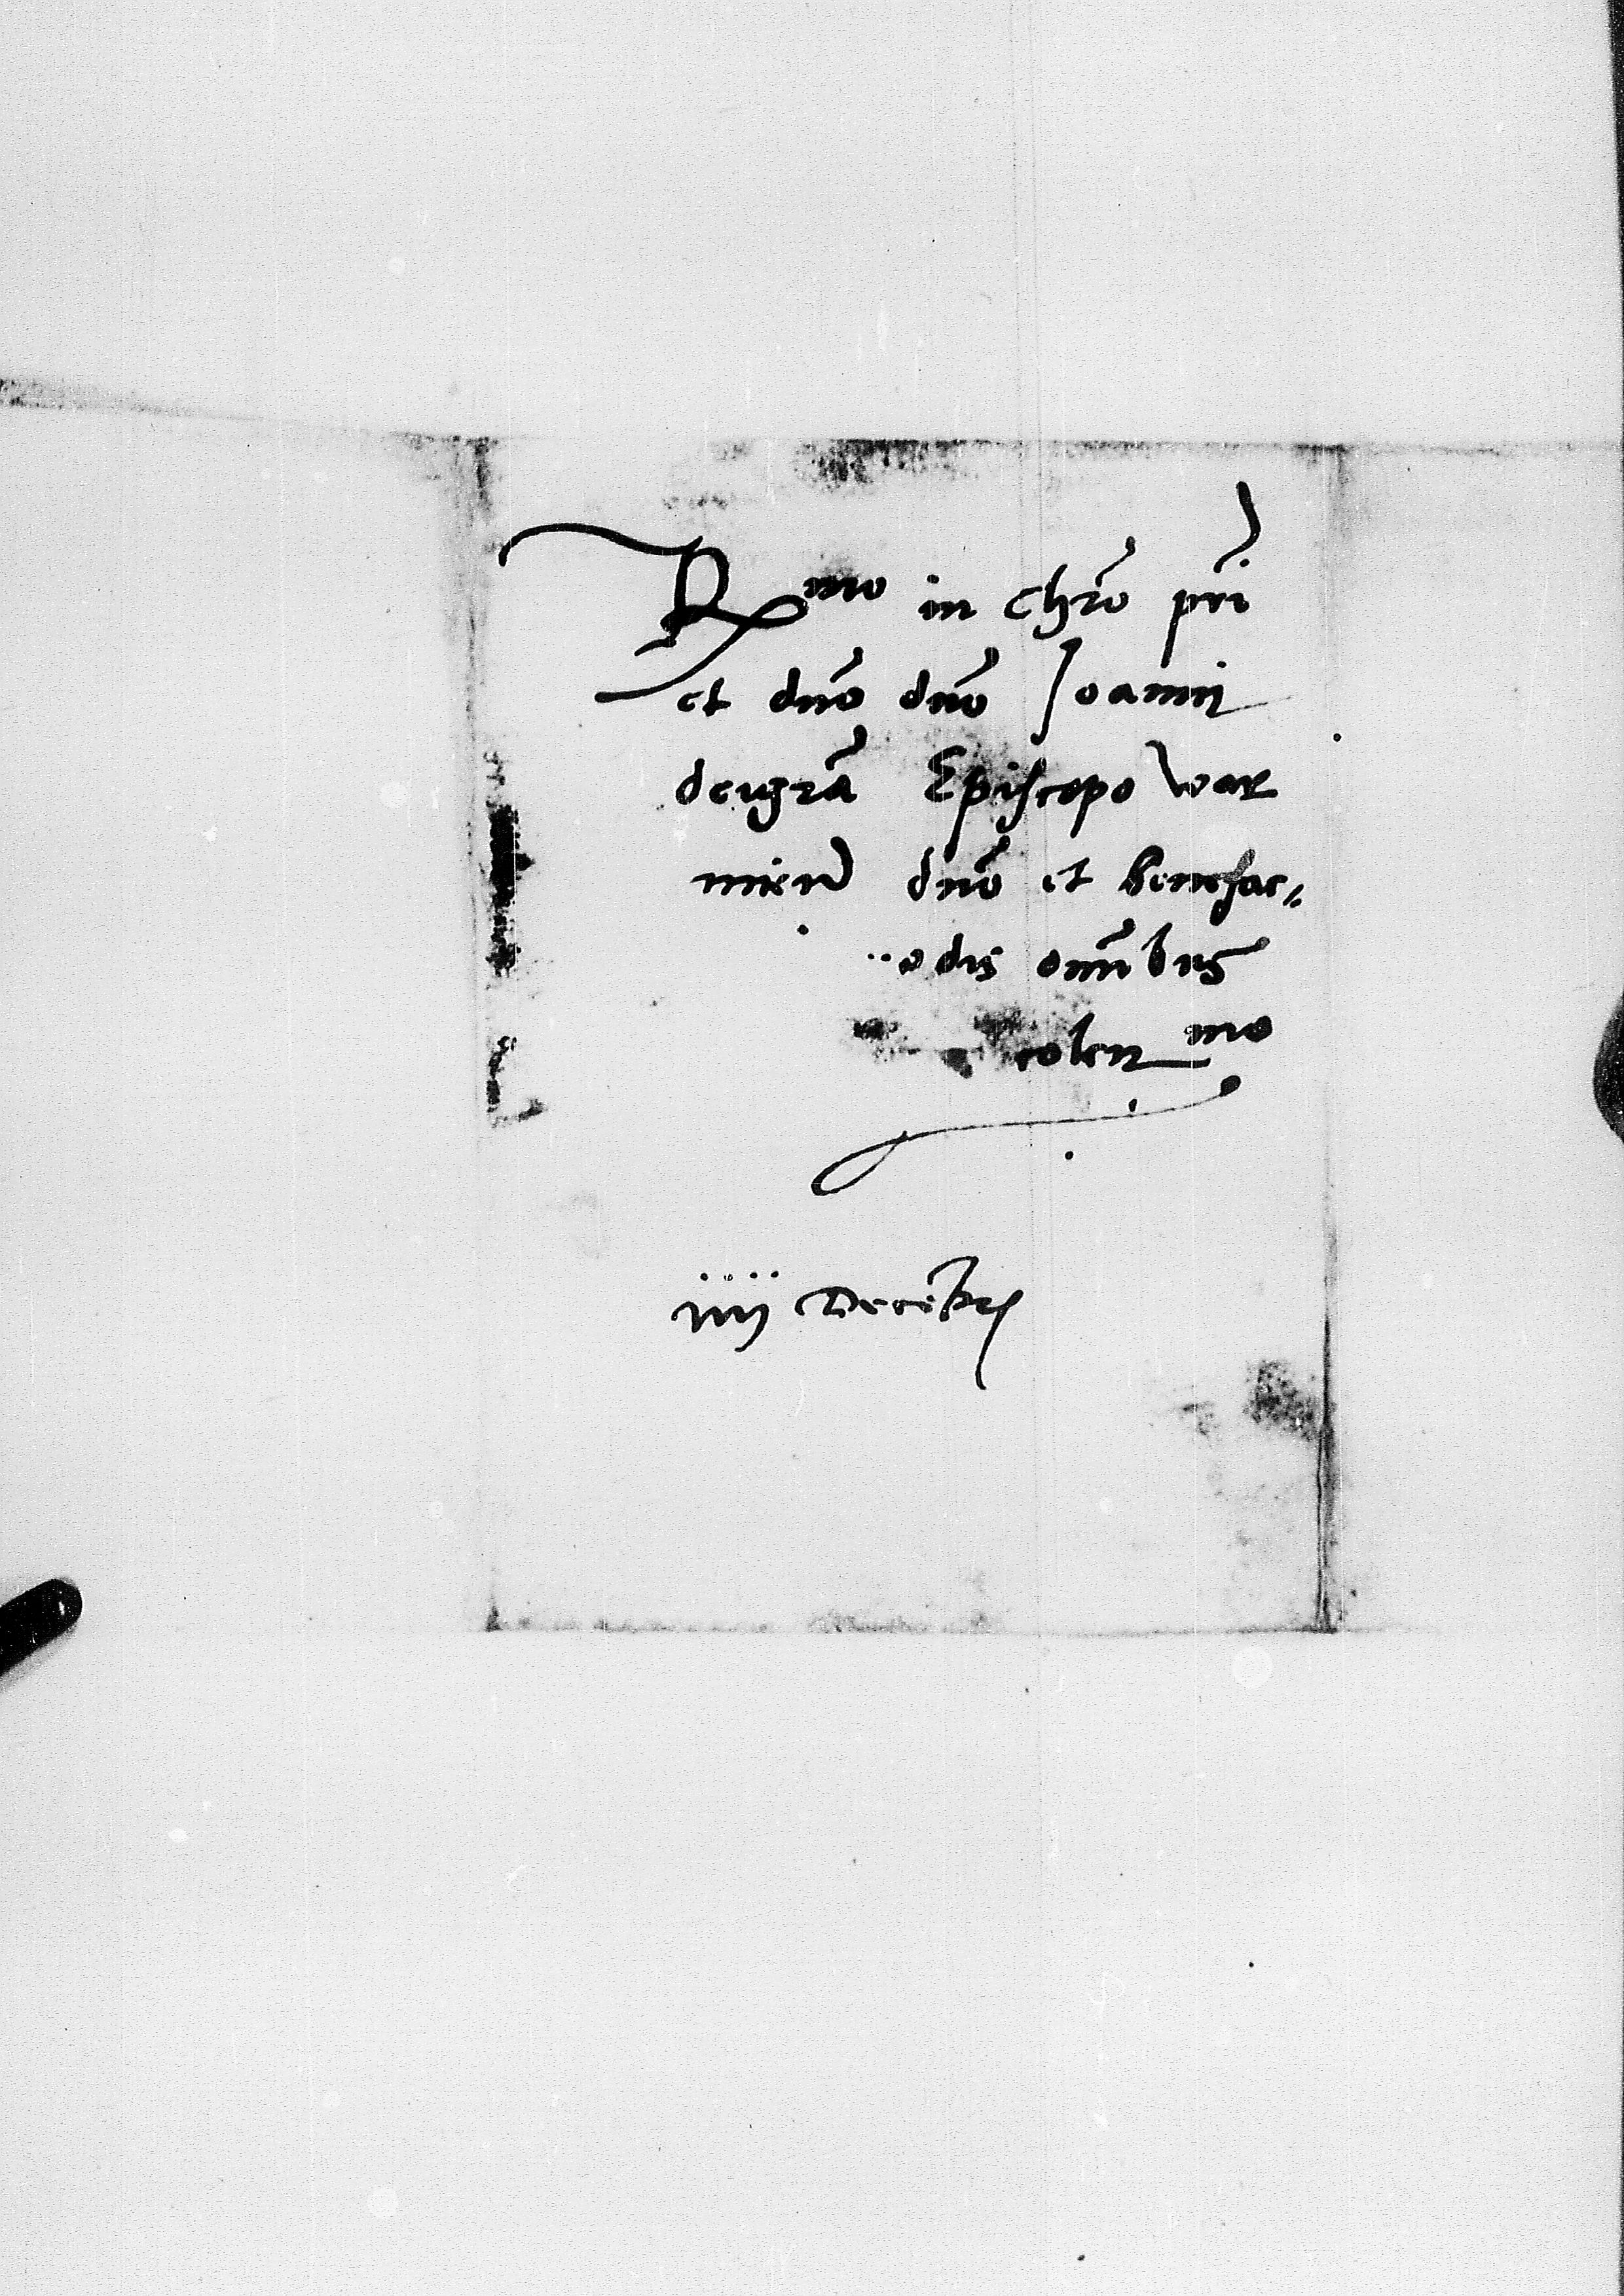 R mo in chro pri
et dno dno Joanni
dei gra Episcopo war
mien dno et benefac
odis omnibus
colen mo
iiij Decebr